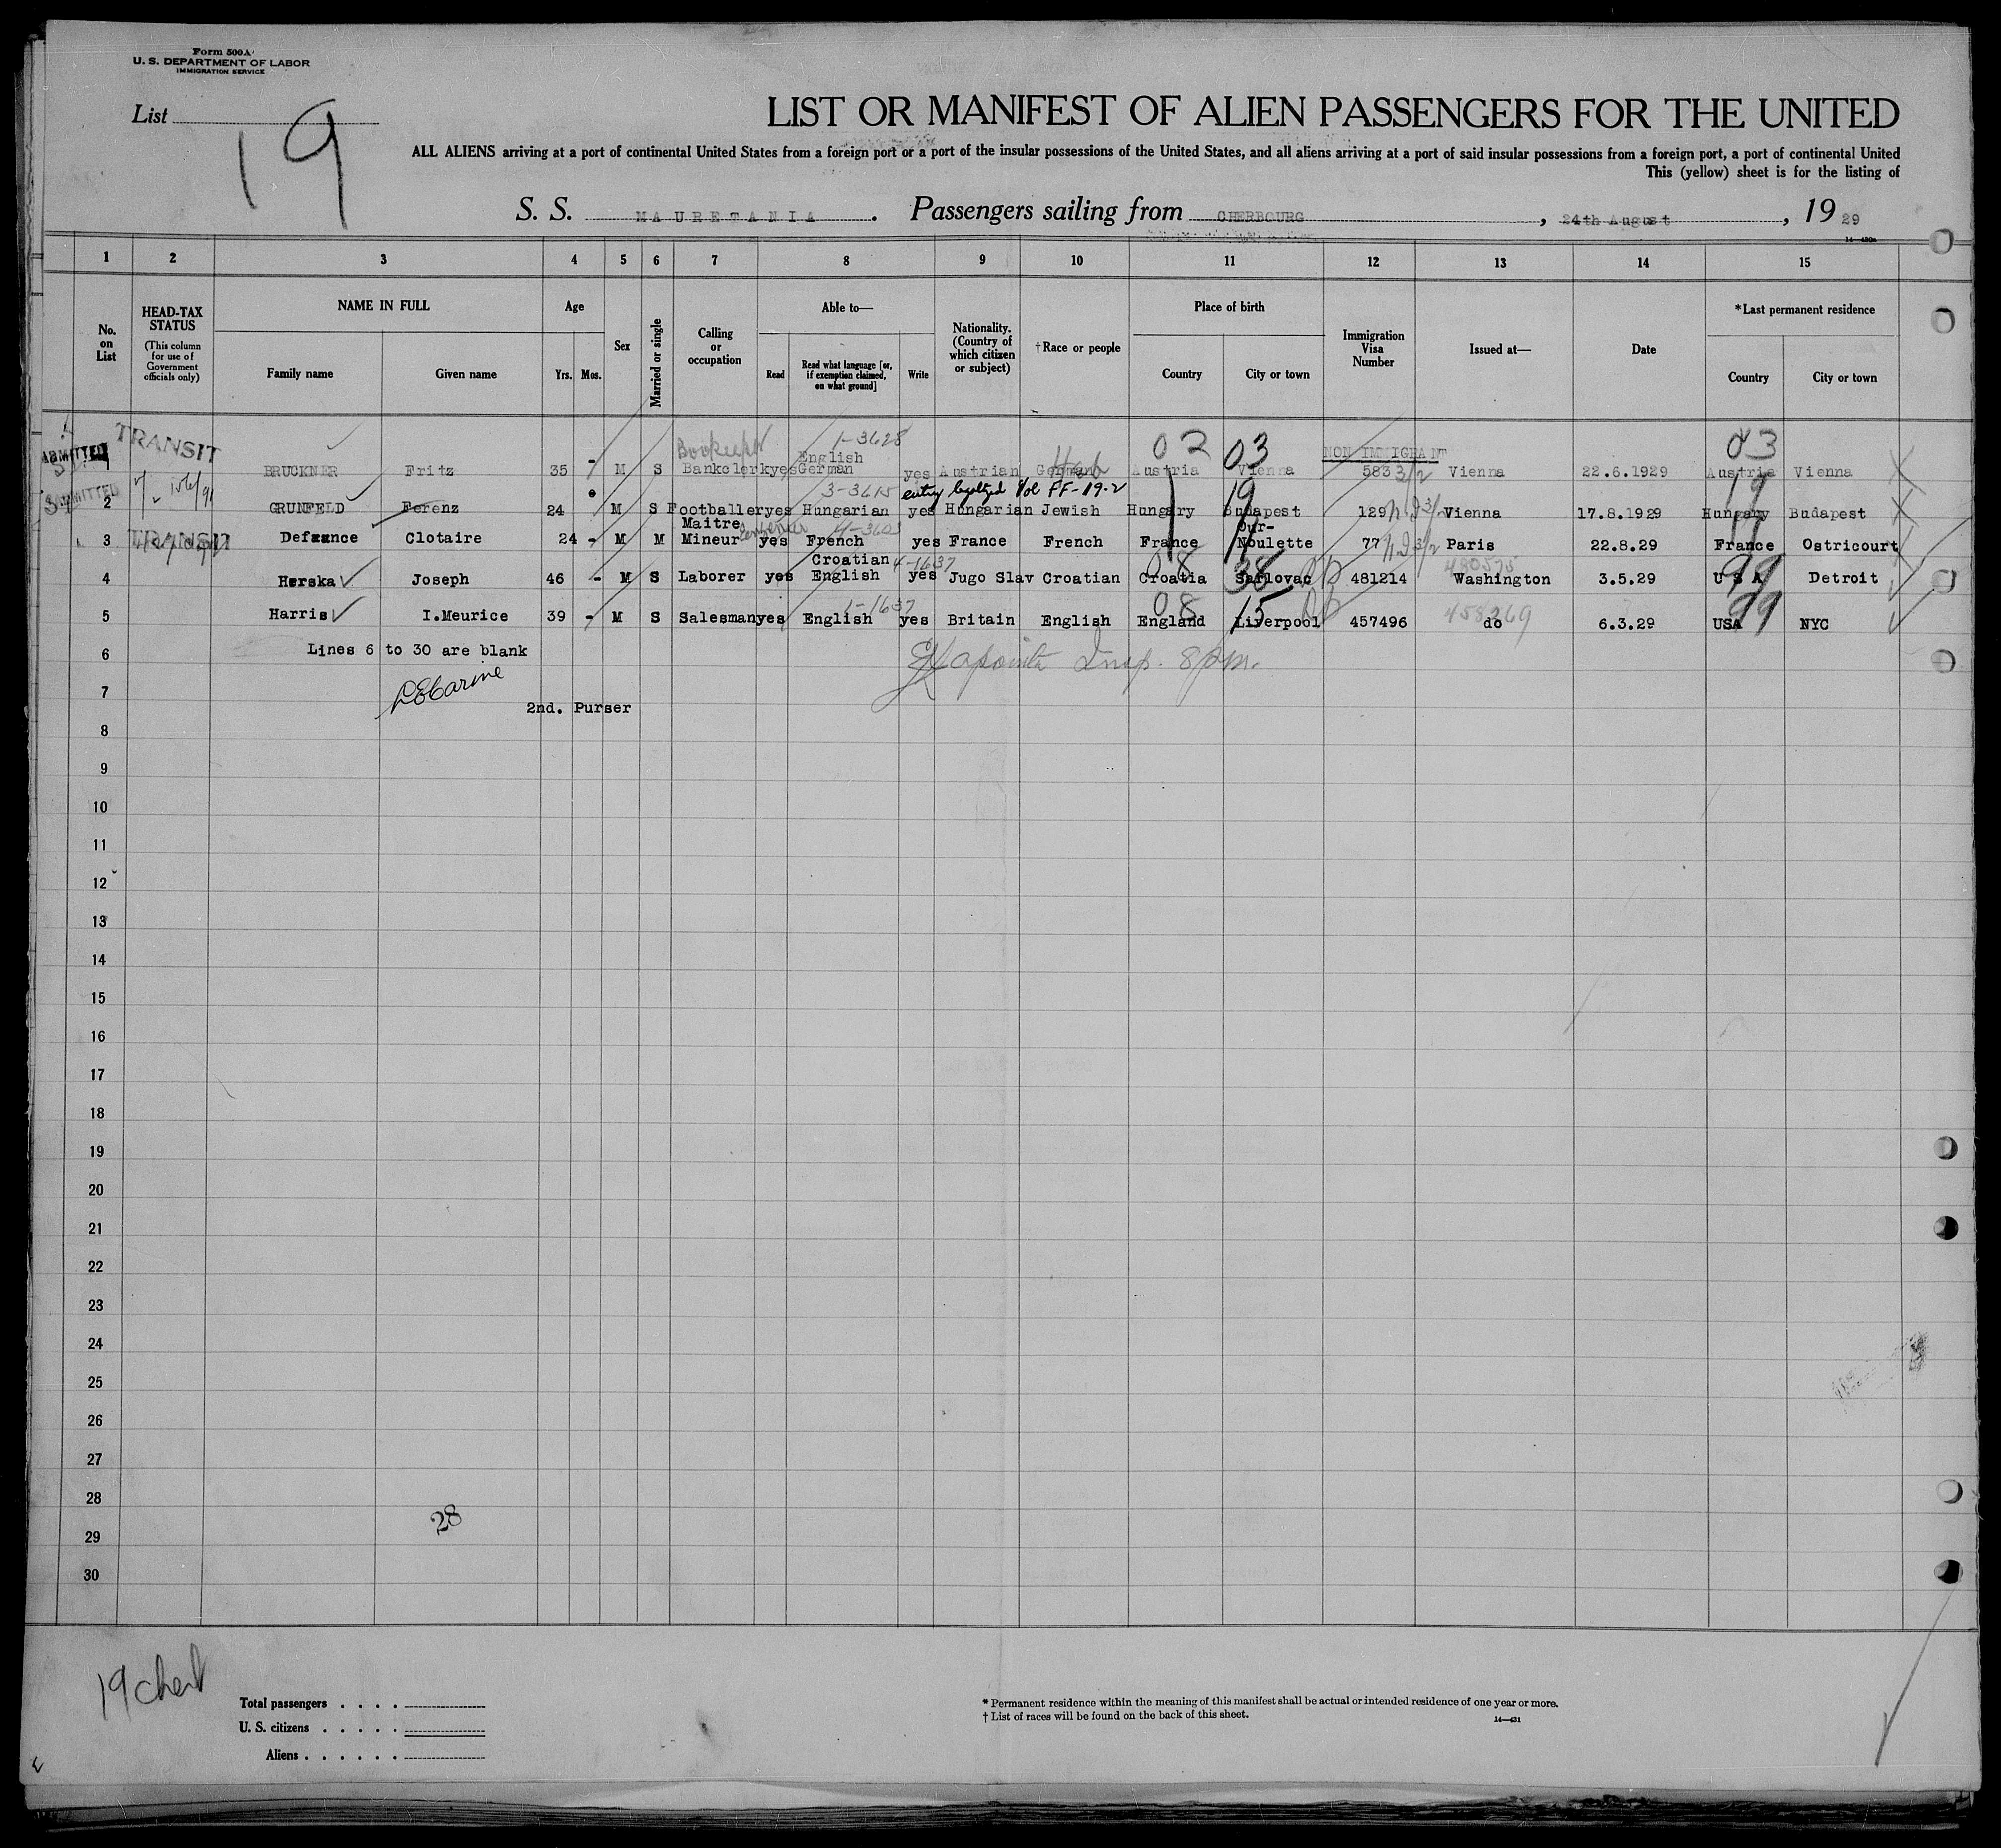 Form 500A
U. S. DEPARTMENT OF LABOR
IMMIGRATION SERVICE
List 19
LIST OR MANIFEST OF ALIEN PASSENGERS FOR THE UNITED
ALL ALIENS arriving at a port of continental United States from a foreign port or a port of the insular possessions of the United States, and all aliens arriving at a port of said insular possessions from a foreign port, a port of continental United
This (yellow) sheet is for the listing of
S. S. MAURETANIA . Passengers sailing from CHERBOURG , 24th August , 19 29
1 2 3 4 5 6 7 8 9 10 11 12 13 14 15
No. on List
HEAD-TAX STATUS
(This column for use of Government officials only)
NAME IN FULL
Family name Given name
Age
Yrs. Mos.
Sex
Married or single
Calling or occupation
Able to—
Read
Read what language [or, if exemption claimed, on what ground]
Write
Nationality. (Country of which citizen or subject)
†Race or people
Place of birth
Country City or town
Immigration Visa Number
Issued at—
Date
*Last permanent residence
Country City or town
TRANSIT 1-3628 02 03 NON IMMIGRANT 03
ADMITTED 1 BRUCKNER Fritz 35 - M S Bankclerk yes English German yes Austrian German Austria Vienna 583 3/2 Vienna 22.6.1929 Austria Vienna
3-3615 entry Vol FF-19-2
ADMITTED 2 GRUNFELD Ferenz 24 M S Footballer yes Hungarian yes Hungarian Jewish Hungary 19 Budapest 129 Vienna 17.8.1929 Hungary 19 Budapest
TRANSIT 3 Defrance Clotaire 24 - M M Maitre Mineur yes French yes France French France Our-Noulette 77 Paris 22.8.29 France Ostricourt
4-1637
4 Herska Joseph 46 - M S Laborer yes Croatian English yes Jugo Slav Croatian Croatia 08 38 481214 Washington 3.5.29 U S A 99 Detroit
1-1637
5 Harris I.Meurice 39 - M S Salesman yes English yes Britain English England 08 Liverpool 15 457496 458269 do 6.3.29 USA 99 NYC
6 Lines 6 to 30 are blank Insp. 8pm.
7
2nd. Purser
8
9
10
11
12
13
14
15
16
17
18
19
20
21
22
23
24
25
26
27
28
28
29
30
19 cherb
Total passengers . . . .
U. S. citizens . . . . .
Aliens . . . . . .
* Permanent residence within the meaning of this manifest shall be actual or intended residence of one year or more.
† List of races will be found on the back of this sheet.
14—431